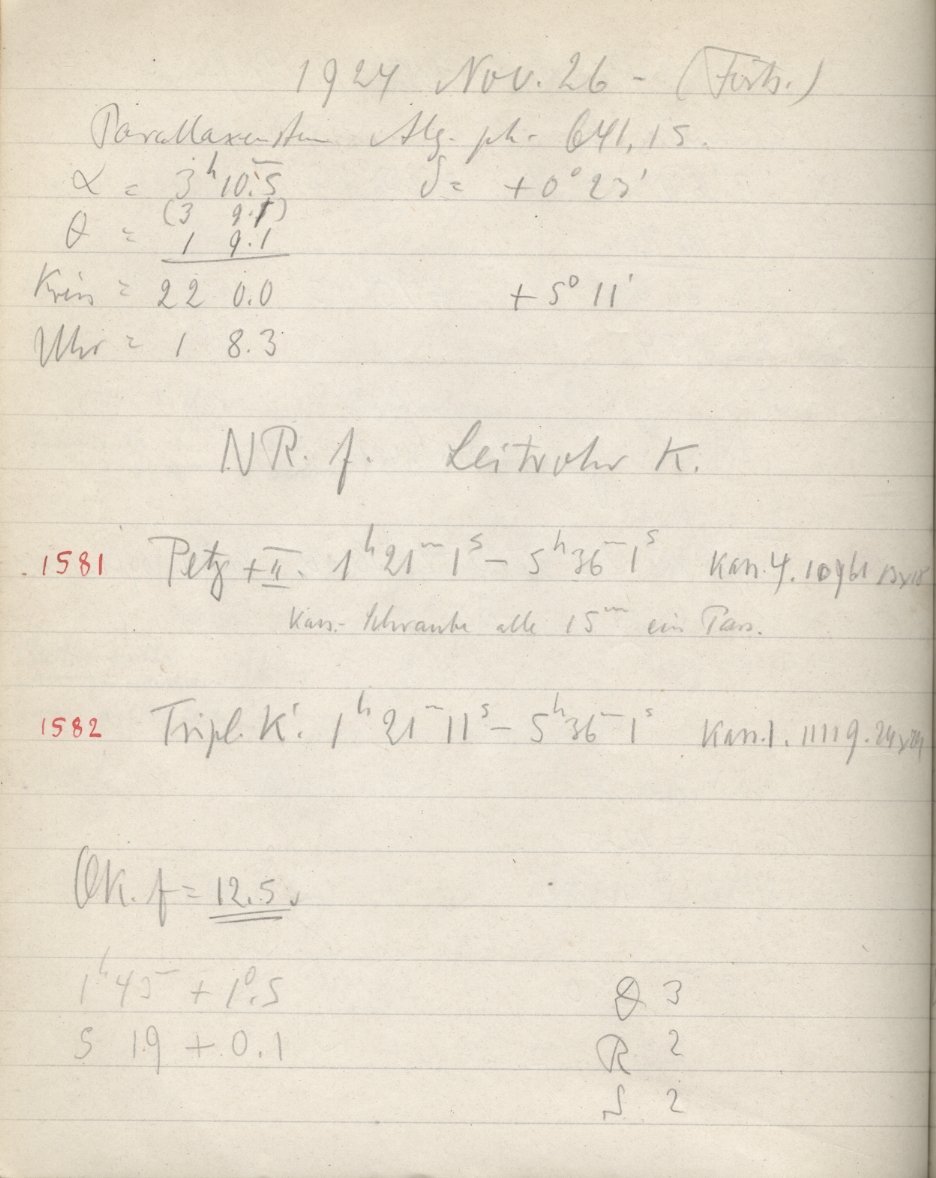 1924 Nov. 26 - (Forts.)
Parallaxenstern Alg. ph. 641, 15.
α = 3ʰ 10ᵐ.5 δ = +0° 23'
(3 9.1)
θ = 1 9.1
Kreis = 22 0.0 + 5° 11'
Uhr = 1 8.3
NR. f. Leitrohr K.
1581 Petz + II. 1ʰ 21ᵐ 1ˢ – 5ʰ 36ᵐ 1ˢ Kass. 4. 10961 13x18
Kass.-Schraube alle 15ᵐ ein Pars.
1582 Tripl. K. 1ʰ 21ᵐ 11ˢ – 5ʰ 36ᵐ 1ˢ Kass. 1. 11119. 24x24
OK. f = 12.5.
1ʰ 45ᵐ + 1°.5
5 19 + 0.1
3
R 2
2